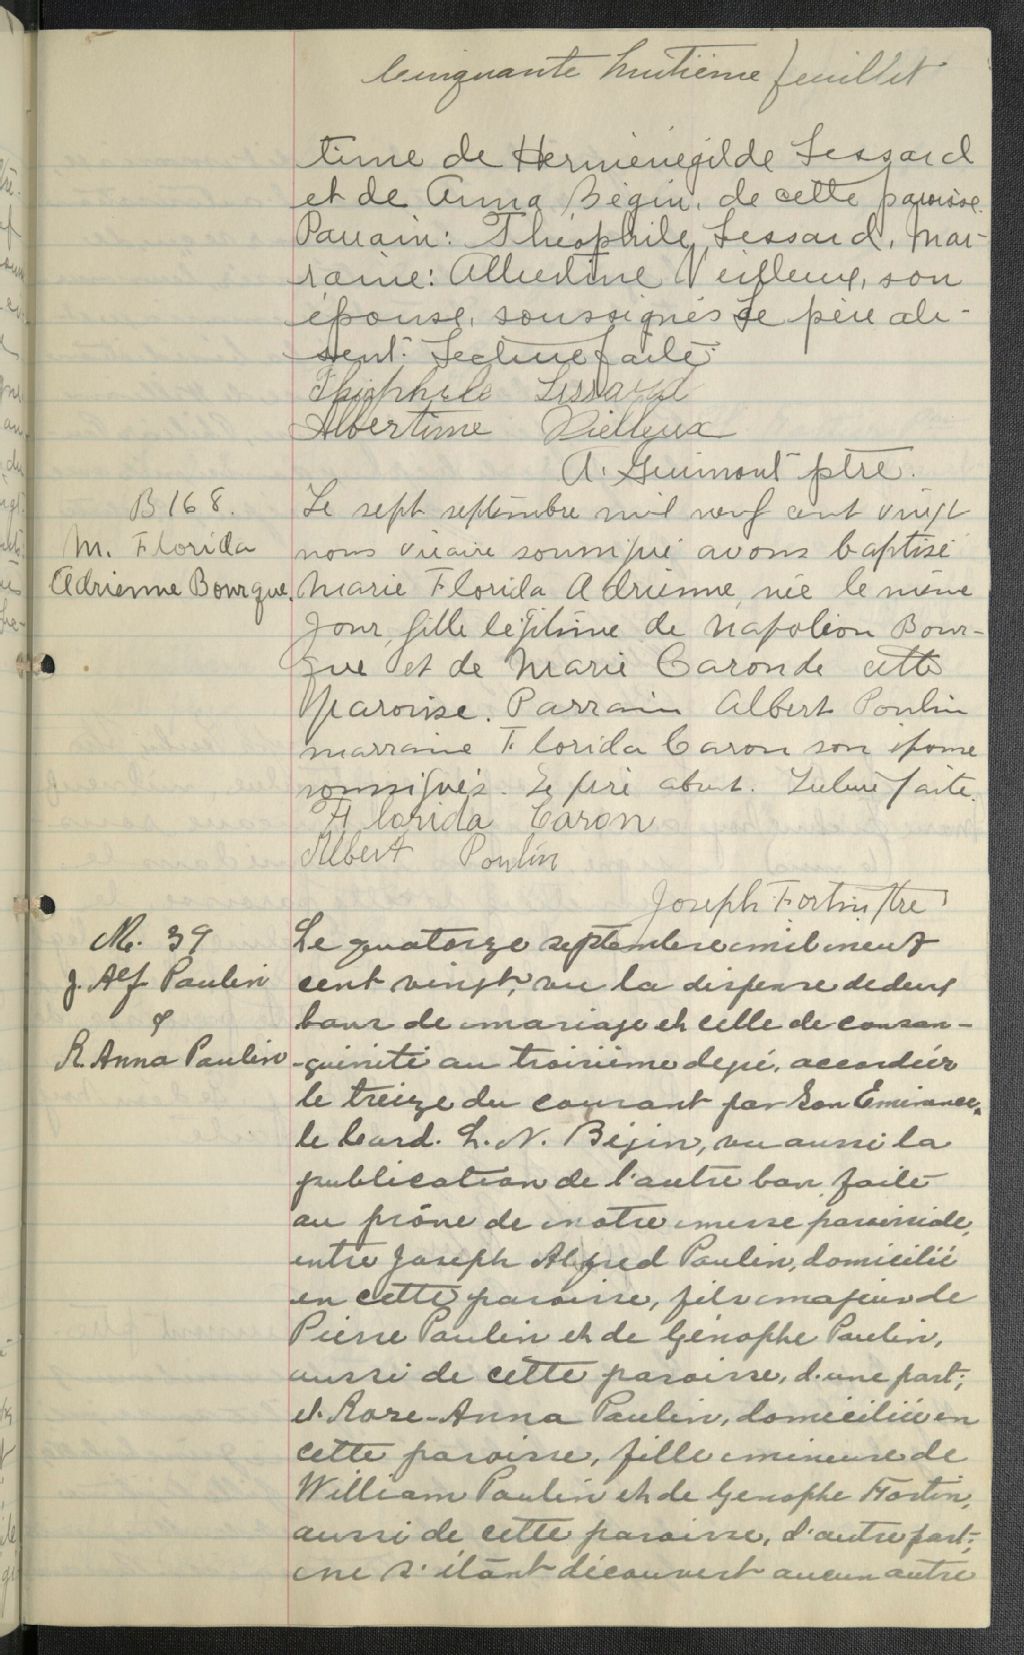 Cinquante huitième feuillet
time de Herménégilde Lessard
et de Anna Bégin, de cette paroisse.
Parrain: Théophile Lessard, mar-
raine: Albertine Veilleux, son
épouse, soussignés Le père ab-
sent. Lecture faite.
Théophile Lessard
Albertine Vielleux
A. Guimont ptre.
B 168.
M. Florida
Adrienne Bourque.
Le sept septembre mil neuf cent vingt
nous vicaire soussigné avons baptisé
Marie Florida Adrienne, née le même
jour, fille légitime de Napoléon Bour-
que et de Marie Caron de cette
paroisse. Parrain Albert Poulin
marraine Florida Caron son épouse
soussignés. Le père absent. Lecture faite.
Florida Caron
Albert Poulin
Joseph Fortin ptre
M. 39
J. Alf Poulin
&
R. Anna Poulin
Le quatorze septembre mil neuf
cent vingt, vu la dispense de deux
bans de mariage et celle de consan-
-guinité au troisième degré, accordées
le treize du courant par Son Eminence
le Card. L. N. Bégin, vu aussi la
publication de l'autre ban faite
au prône de notre messe paroissiale,
entre Joseph Alfred Poulin, domicilié
en cette paroisse, fils majeur de
Pierre Poulin et de Génophe Poulin,
aussi de cette paroisse, d'une part;
et Rose-Anna Poulin, domiciliée en
cette paroisse, fille mineure de
William Poulin et de Genophe Fortin,
aussi de cette paroisse, d'autre part;
ne s'étant découvert aucun autre